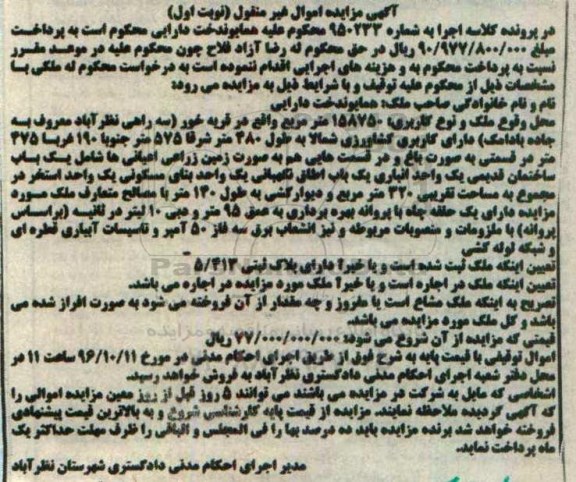 آگهی مزایده اموال غیر منقول (نوبت اول)
در پرونده کلاسه اجرا به شماره ۹۵۰۲۳۳ محکوم علیه همایوندخت دارابی محکوم است به پرداخت
مبلغ ۹۰/۹۷۷/۸۰۰/۰۰۰ ریال در حق محکوم له رضا آزاد فلاح چون محکوم علیه در موعد مقرر
نسبت به پرداخت محکوم به و هزینه های اجرایی اقدام ننموده است به درخواست محکوم له ملکی با
مشخصات ذیل از محکوم علیه توقیف و با شرایط ذیل به مزایده می رود:
نام و نام خانوادگی صاحب ملک: همایوندخت دارابی
محل وقوع ملک و نوع کاربری: ۱۵۸۷۵۰ متر مربع واقع در قریه خور (سه راهی نظرآباد معروف به
جاده بادامک) دارای کاربری کشاورزی شمالا به طول ۳۸۰ متر شرقا ۵۷۵ متر جنوبا ۱۹۰ غربا ۳۷۵
متر در قسمتی به صورت باغ و در قسمت هایی هم به صورت زمین زراعی اعیانی ها شامل یک باب
ساختمان قدیمی یک واحد انباری یک باب اطاق نگهبانی یک واحد بنای مسکونی یک واحد استخر در
مجموع به مساحت تقریبی ۳۲۰ متر مربع و دیوارکشی به طول ۱۴۰ متر با مصالح متعارف ملک مورد
مزایده دارای یک حلقه چاه با پروانه بهره برداری به عمق ۹۵ متر و دبی ۱۰ لیتر در ثانیه (براساس
پروانه) با ملزومات و منصوبات مربوطه و نیز انشعاب برق سه فاز ۵۰ آمپر و تاسیسات آبیاری قطره ای
و شبکه لوله کشی
تعیین اینکه ملک ثبت شده است و یا خیر؟ دارای پلاک ثبتی ۵/۴۱۳
تعیین اینکه ملک در اجاره است و یا خیر؟ ملک مورد مزایده در اجاره می باشد.
تصریح به اینکه ملک مشاع است یا مفروز و چه مقدار از آن فروخته می شود به صورت افراز شده می
باشد و کل ملک مورد مزایده می باشد.
قیمتی که مزایده از آن شروع می شود: ۷۷/۰۰۰/۰۰۰/۰۰۰ ریال
اموال توقیفی با قیمت پایه به شرح فوق از طریق اجرای احکام مدنی در مورخ ۹۶/۱۰/۱۱ ساعت ۱۱ در
محل دفتر شعبه اجرای احکام مدنی دادگستری نظرآباد به فروش خواهد رسید.
اشخاصی که مایل به شرکت در مزایده می باشند می توانند ۵ روز قبل از روز معین مزایده اموالی را
که آگهی گردیده ملاحظه نمایند. مزایده از قیمت پایه کارشناسی شروع و به بالاترین قیمت پیشنهادی
فروخته خواهد شد برنده مزایده باید ده درصد بها را فی المجلس و الباقی را ظرف مهلت حداکثر یک
ماه پرداخت نماید.
مدیر اجرای احکام مدنی دادگستری شهرستان نظرآباد